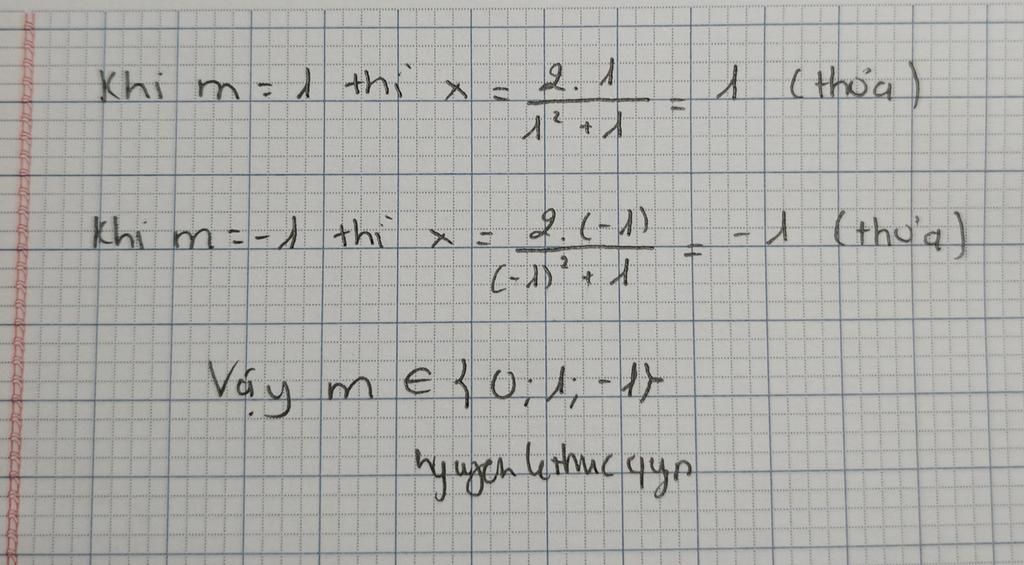 Khi m = 1 thì x = \frac{2 . 1}{1² + 1} = 1 (thỏa)
Khi m = -1 thì x = \frac{2. (-1)}{(-1)² + 1} = -1 (thỏa)
Vậy m ∈ { 0; 1; -1}